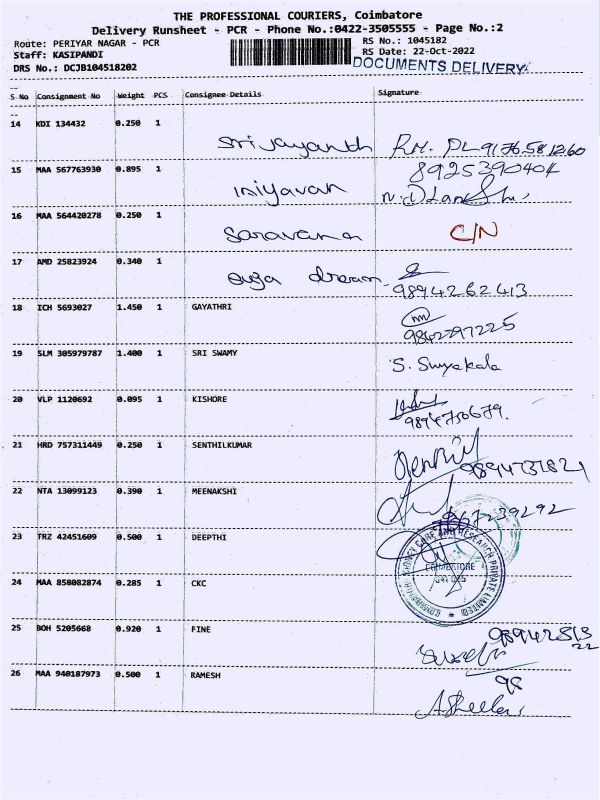 THE PROFESSIONAL COURIERS, Coimbatore
Delivery Runsheet - PCR - Phone No.:0422-3505555 - Page No.:2
Route: PERIYAR NAGAR - PCR
RS No.: 1045182
Staff: KASIPANDI
RS Date: 22-Oct-2022
DRS No.: DCJB104518202
DOCUMENTS DELIVERY
S No Consignment No Weight PCS Consignee Details Signature
14 KDI 134432 0.250 1
Srijayanth
15 MAA 567763930 0.895 1
8925390404
iniyavan
16 MAA 564420278 0.250 1
Saravana C/N
17 AMD 25823924 0.340 1
dream
9894262413
18 ICH 5693027 1.450 1 GAYATHRI
9842297225
19 SLM 305979787 1.400 1 SRI SWAMY
S. Suryakala
20 VLP 1120692 0.095 1 KISHORE
21 HRD 757311449 0.250 1 SENTHILKUMAR
22 NTA 13099123 0.390 1 MEENAKSHI
23 TRZ 42451609 0.500 1 DEEPTHI
KIDNEY CARE AND RESEARCH PRIVATE LIMITED
COIMBATORE
24 MAA 858082874 0.285 1 CKC
25 BOH 5205668 0.920 1 FINE
26 MAA 940187973 0.500 1 RAMESH
98